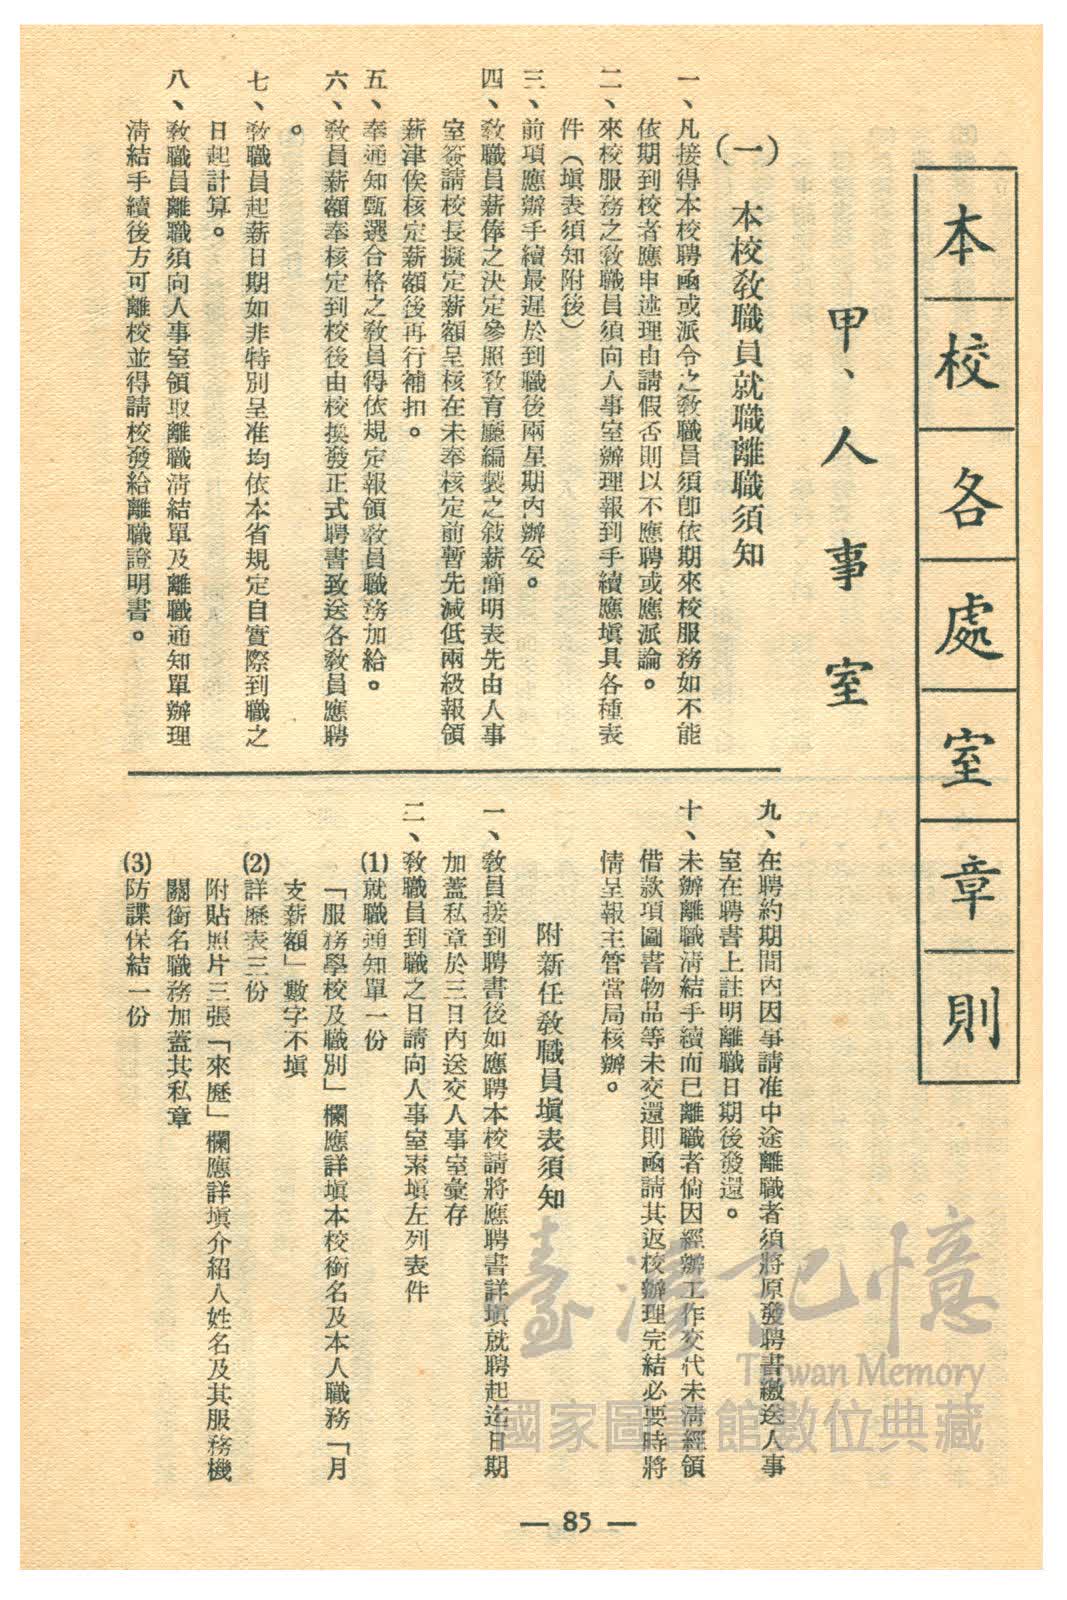 本校各處室章則
甲、人事室
(一) 本校教職員就職離職須知
一、凡接得本校聘函或派令之教職員須卽依期來校服務如不能
依期到校者應申述理由請假否則以不應聘或應派論。
二、來校服務之教職員須向人事室辦理報到手續應塡具各種表
件（塡表須知附後）
三、前項應辦手續最遲於到職後兩星期內辦妥。
四、教職員薪俸之決定參照教育廳編製之敍薪簡明表先由人事
室簽請校長擬定薪額呈核在未奉核定前暫先減低兩級報領
薪津俟核定薪額後再行補扣。
五、奉通知甄選合格之教員得依規定報領教員職務加給。
六、教員薪額奉核定到校後由校換發正式聘書致送各教員應聘
。
七、教職員起薪日期如非特別呈准均依本省規定自實際到職之
日起計算。
八、教職員離職須向人事室領取離職淸結單及離職通知單辦理
淸結手續後方可離校並得請校發給離職證明書。
九、在聘約期間內因事請准中途離職者須將原發聘書繳送人事
室在聘書上註明離職日期後發還。
十、未辦離職淸結手續而已離職者倘因經辦工作交代未淸經領
借款項圖書物品等未交還則函請其返校辦理完結必要時將
情呈報主管當局核辦。
附新任教職員塡表須知
一、教員接到聘書後如應聘本校請將應聘書詳塡就聘起迄日期
加蓋私章於三日內送交人事室彙存
二、教職員到職之日請向人事室索塡左列表件
(1)就職通知單一份
「服務學校及職別」欄應詳塡本校銜名及本人職務「月
支薪額」數字不塡
(2)詳歷表三份
附貼照片三張「來歷」欄應詳塡介紹人姓名及其服務機
關銜名職務加蓋其私章
(3)防諜保結一份
— 85 —
臺灣記憶
Taiwan Memory
國家圖書館數位典藏